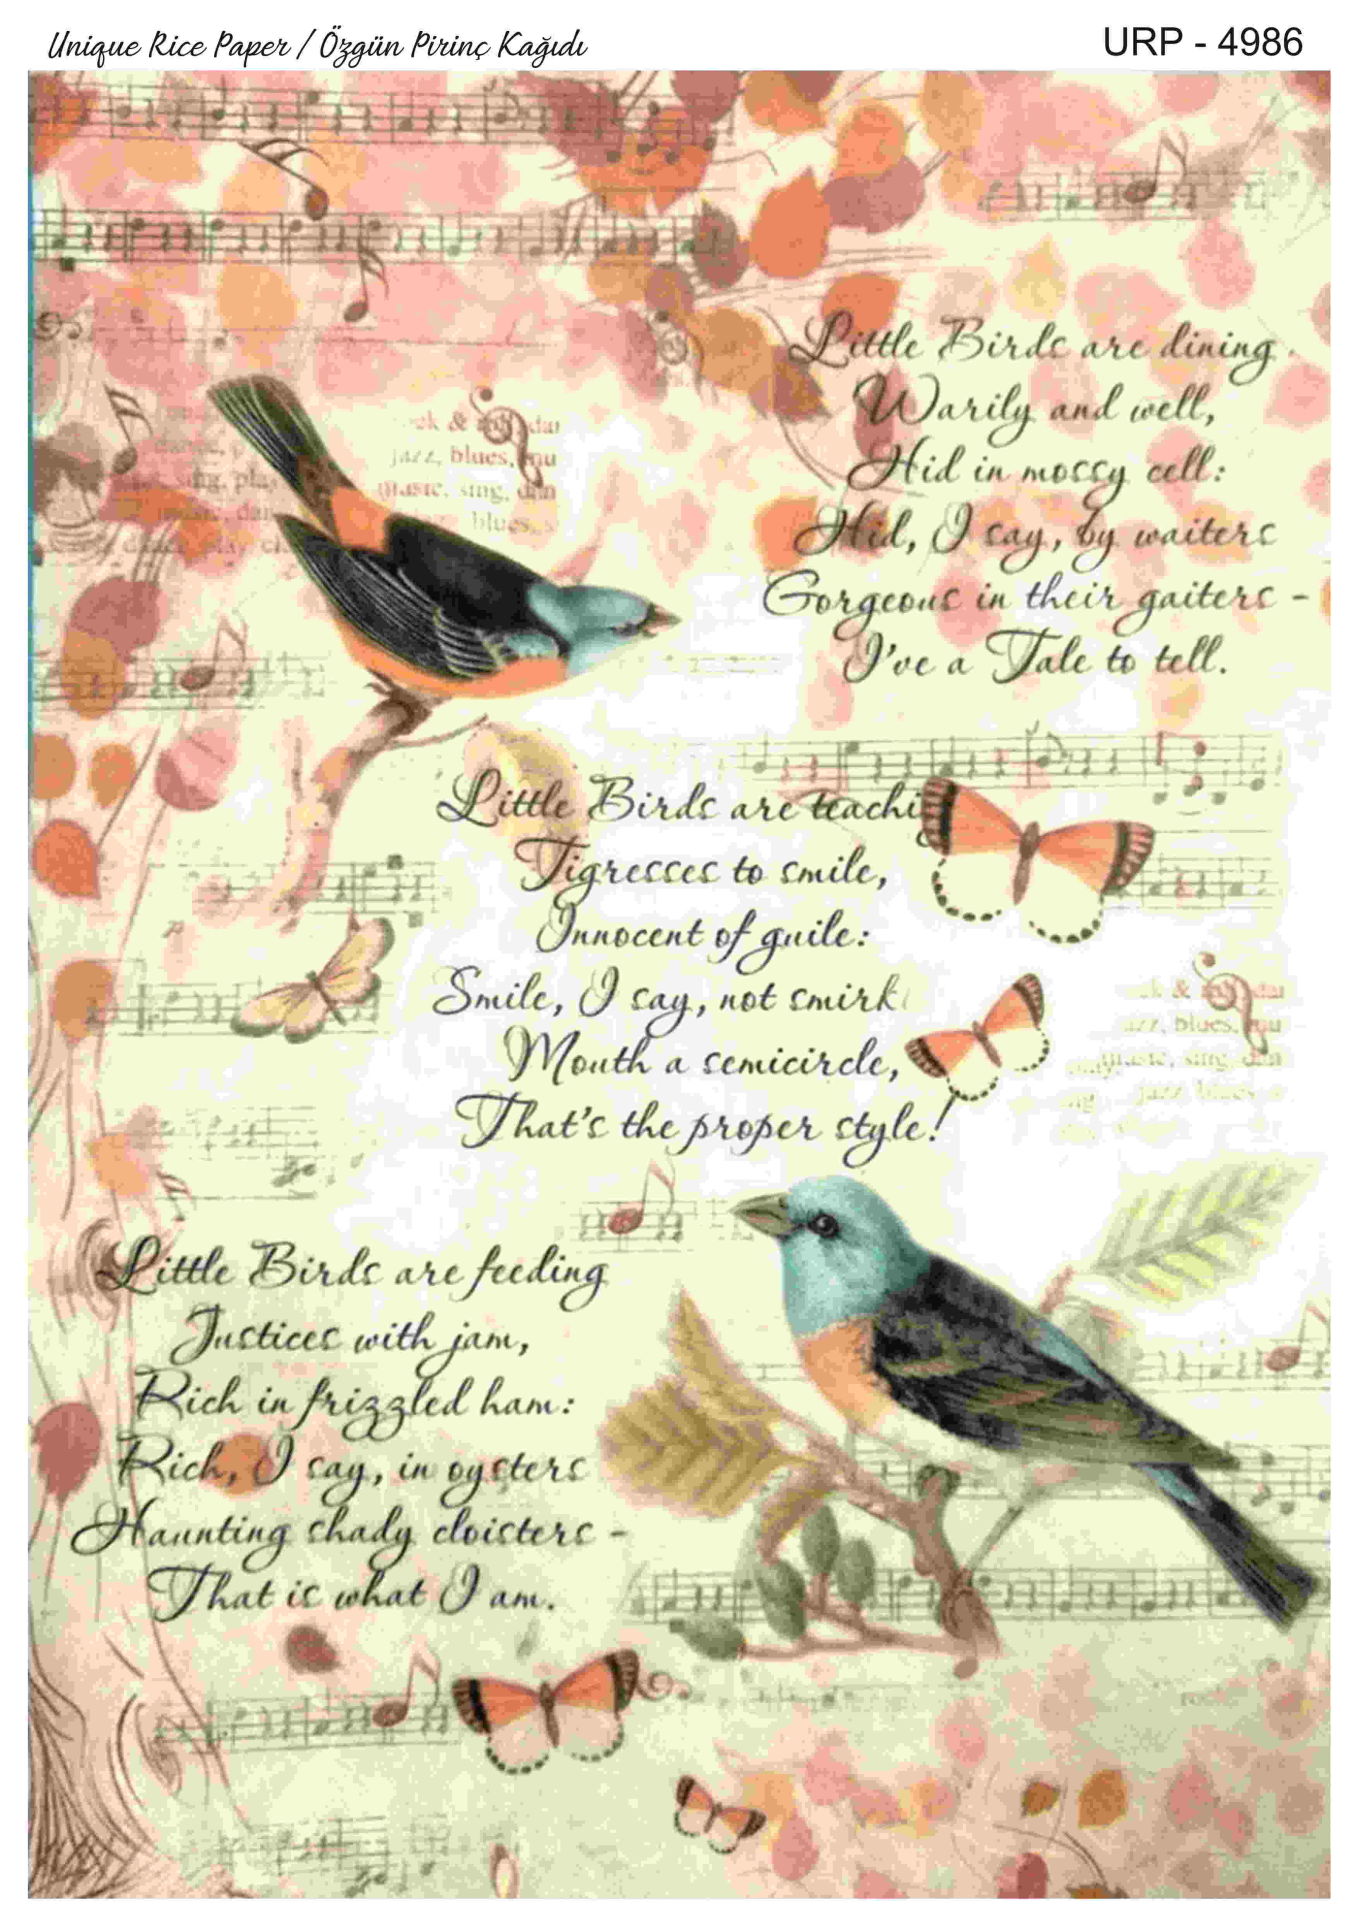 Unique Rice Paper / Özgün Pirinç Kağıdı
URP - 4986
Little Birds are dining
Warily and well,
Hid in mossy cell:
Hid, I say, by waiters
Gorgeous in their gaiters -
I've a Tale to tell.
jazz, blues,
music, sing, dan
blues,
sing, play
Little Birds are teachi
Tigresses to smile,
Innocent of guile:
Smile, I say, not smirk
Mouth a semicircle,
That's the proper style!
blues,
music, sing, dan
Little Birds are feeding
Justices with jam,
Rich in frizzled ham:
Rich, I say, in oysters
Haunting shady cloisters -
That is what I am.